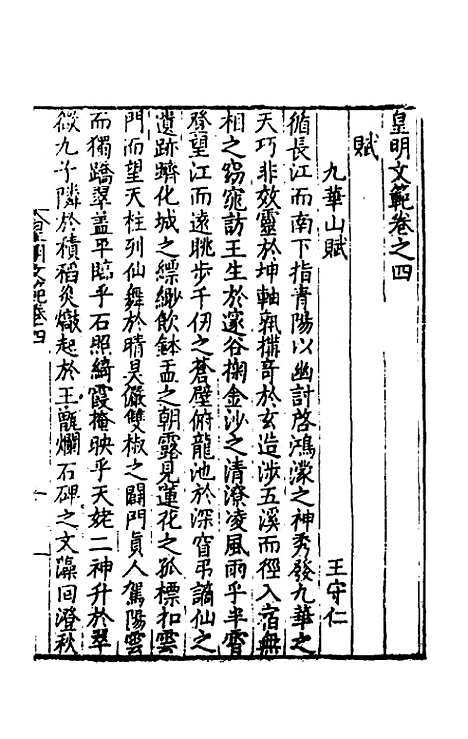 皇明文範卷之四
賦
九華山賦
王守仁
循長江而南下指青陽以幽討啓鴻濛之神秀發九華之
天巧非效靈於坤軸孰搆奇於玄造涉五溪而徑入宿無
相之窈窕訪王生於邃谷掬金沙之清潦凌風雨乎半霄
登望江而遠眺步千仞之蒼壁俯龍池於深窅弔謫仙之
遺跡躋化城之縹緲飲鉢盂之朝露見蓮花之孤標扣雲
門而望天柱列仙舞於晴昊儼雙椒之闢門真人駕陽雲
而獨蹻翠盖平臨乎石照綺霞掩映乎天姥二神升於翠
微九子隣於積稻炎熇起於玉甑爛石碑之文藻回澄秋
皇明文範卷四
一